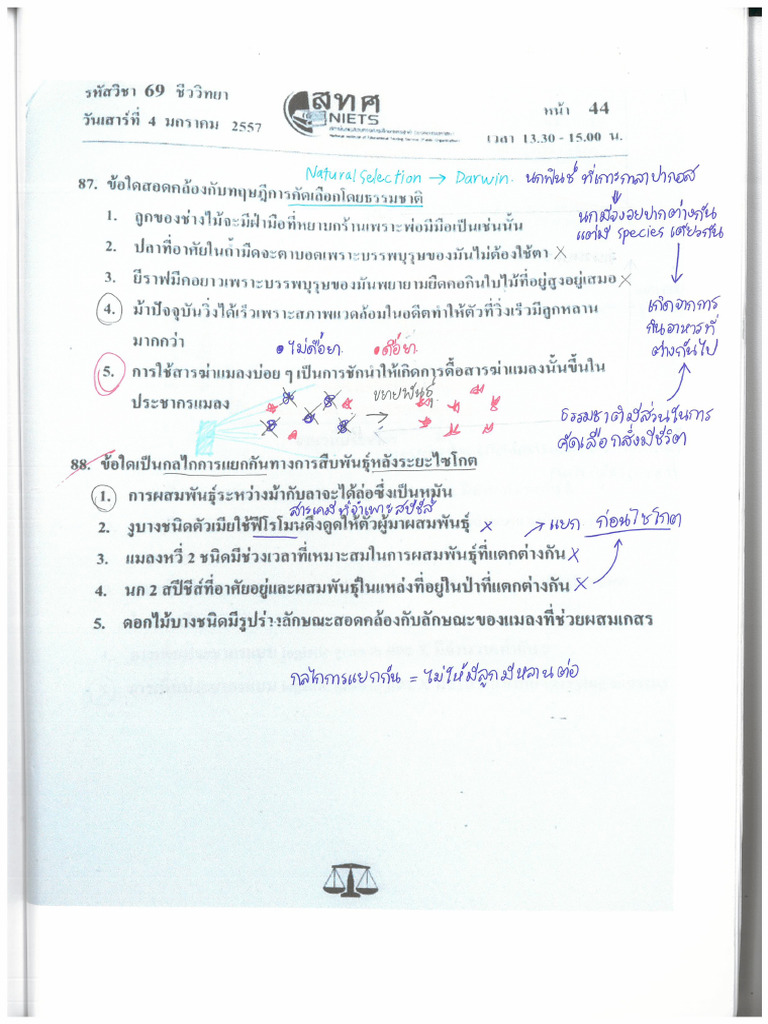 รหัสวิชา 69 ชีววิทยา
วันเสาร์ที่ 4 มกราคม 2557
สทศ
NIETS
หน้า 44
เวลา 13.30 - 15.00 น.
Natural Selection → Darwin. นกฟินซ์ ที่เกาะกาลาปากอส
87. ข้อใดสอดคล้องกับทฤษฎีการคัดเลือกโดยธรรมชาติ
นกมีจงอยปากต่างกัน
แต่มี species เดียวกัน
1. ลูกของช่างไม้จะมีฝ่ามือที่หยาบกร้านเพราะพ่อมีมือเป็นเช่นนั้น
2. ปลาที่อาศัยในถ้ำมืดจะตาบอดเพราะบรรพบุรุษของมันไม่ต้องใช้ตา ×
3. ยีราฟมีคอยาวเพราะบรรพบุรุษของมันพยายามยืดคอกินใบไม้ที่อยู่สูงอยู่เสมอ ×
4. ม้าปัจจุบันวิ่งได้เร็วเพราะสภาพแวดล้อมในอดีตทำให้ตัวที่วิ่งเร็วมีลูกหลาน
มากกว่า
เกิดจากการ
กินอาหารที่
ต่างกันไป
• ไม่ดื้อยา • ดื้อยา
5. การใช้สารฆ่าแมลงบ่อย ๆ เป็นการชักนำให้เกิดการดื้อสารฆ่าแมลงนั้นขึ้นใน
ประชากรแมลง
ขยายพันธุ์
→
ธรรมชาติมีส่วนในการ
คัดเลือกสิ่งมีชีวิต
88. ข้อใดเป็นกลไกการแยกกันทางการสืบพันธุ์หลังระยะไซโกต
1. การผสมพันธุ์ระหว่างม้ากับลาจะได้ล่อซึ่งเป็นหมัน
สารเคมีที่จำเพาะสปีชีส์
2. งูบางชนิดตัวเมียใช้ฟีโรโมนดึงดูดให้ตัวผู้มาผสมพันธุ์ × → แยก ก่อนไซโกต
3. แมลงหวี่ 2 ชนิดมีช่วงเวลาที่เหมาะสมในการผสมพันธุ์ที่แตกต่างกัน ×
4. นก 2 สปีชีส์ที่อาศัยอยู่และผสมพันธุ์ในแหล่งที่อยู่ในป่าที่แตกต่างกัน ×
5. ดอกไม้บางชนิดมีรูปร่างลักษณะสอดคล้องกับลักษณะของแมลงที่ช่วยผสมเกสร
กลไกการแยกกัน = ไม่ให้มีลูกมีหลานต่อ